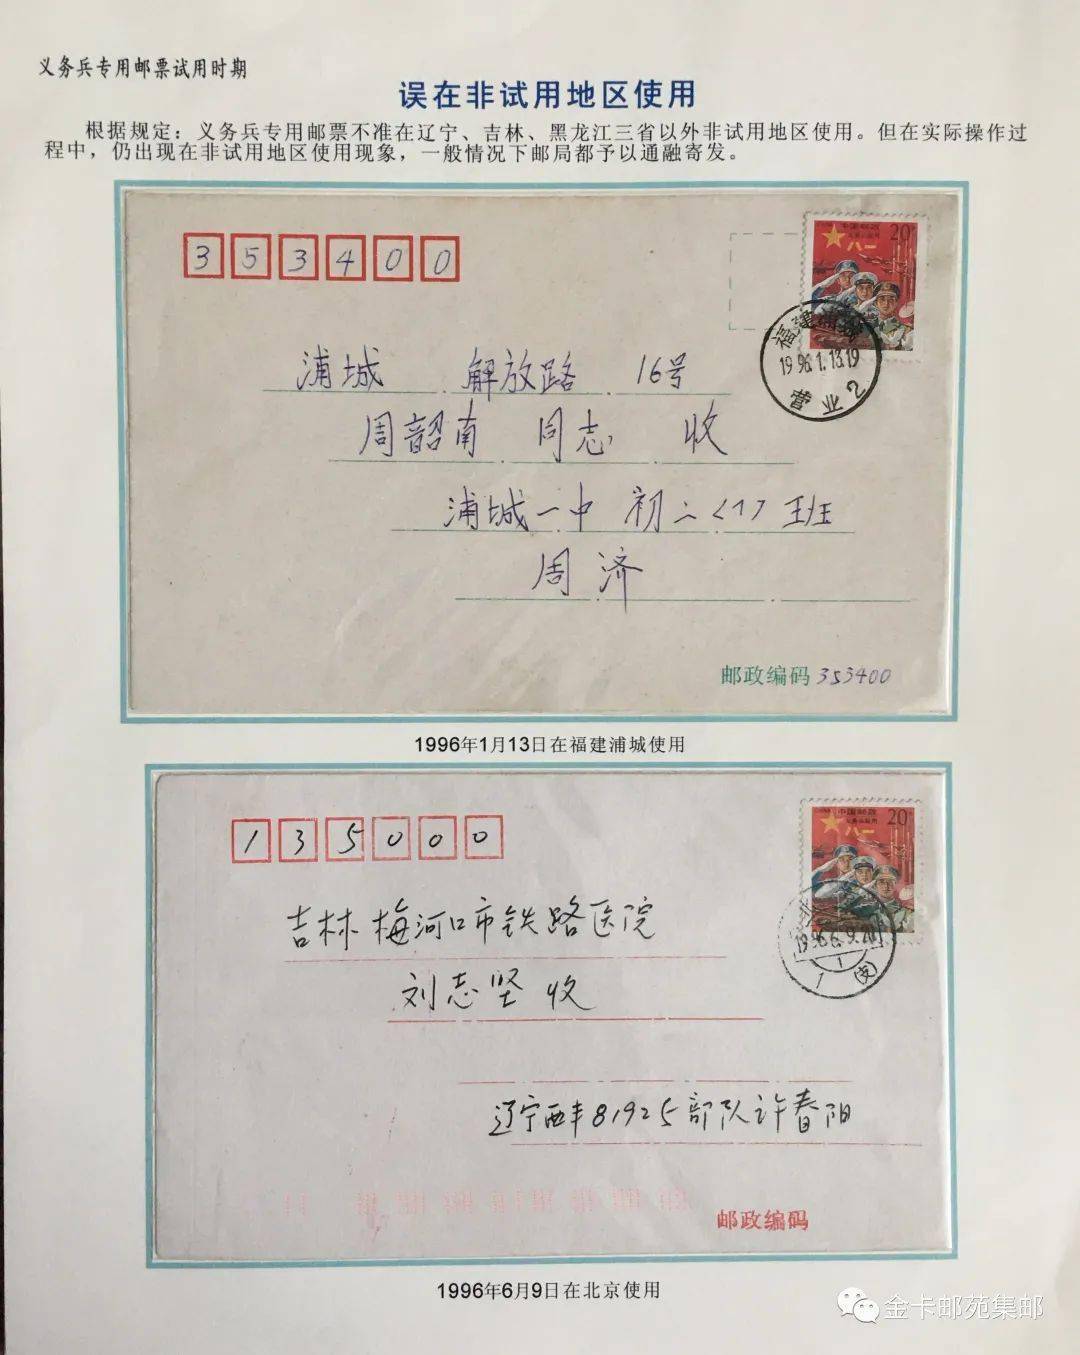 义务兵专用邮票试用时期
误在非试用地区使用
根据规定：义务兵专用邮票不准在辽宁、吉林、黑龙江三省以外非试用地区使用。但在实际操作过
程中，仍出现在非试用地区使用现象，一般情况下邮局都予以通融寄发。
353400
中国邮政 20分
义务兵专用
八一
福建浦城
1996.1.13.19
营业2
浦城 解放路 16号
周韶南 同志 收
浦城一中 初二<1>班
周济
邮政编码 353400
1996年1月13日在福建浦城使用
135000
中国邮政 20分
义务兵专用
八一
1996.6.9.20
1
1 (支)
吉林梅河口市铁路医院
刘志坚 收
辽宁西丰81925部队许春阳
邮政编码
1996年6月9日在北京使用
金卡邮苑集邮